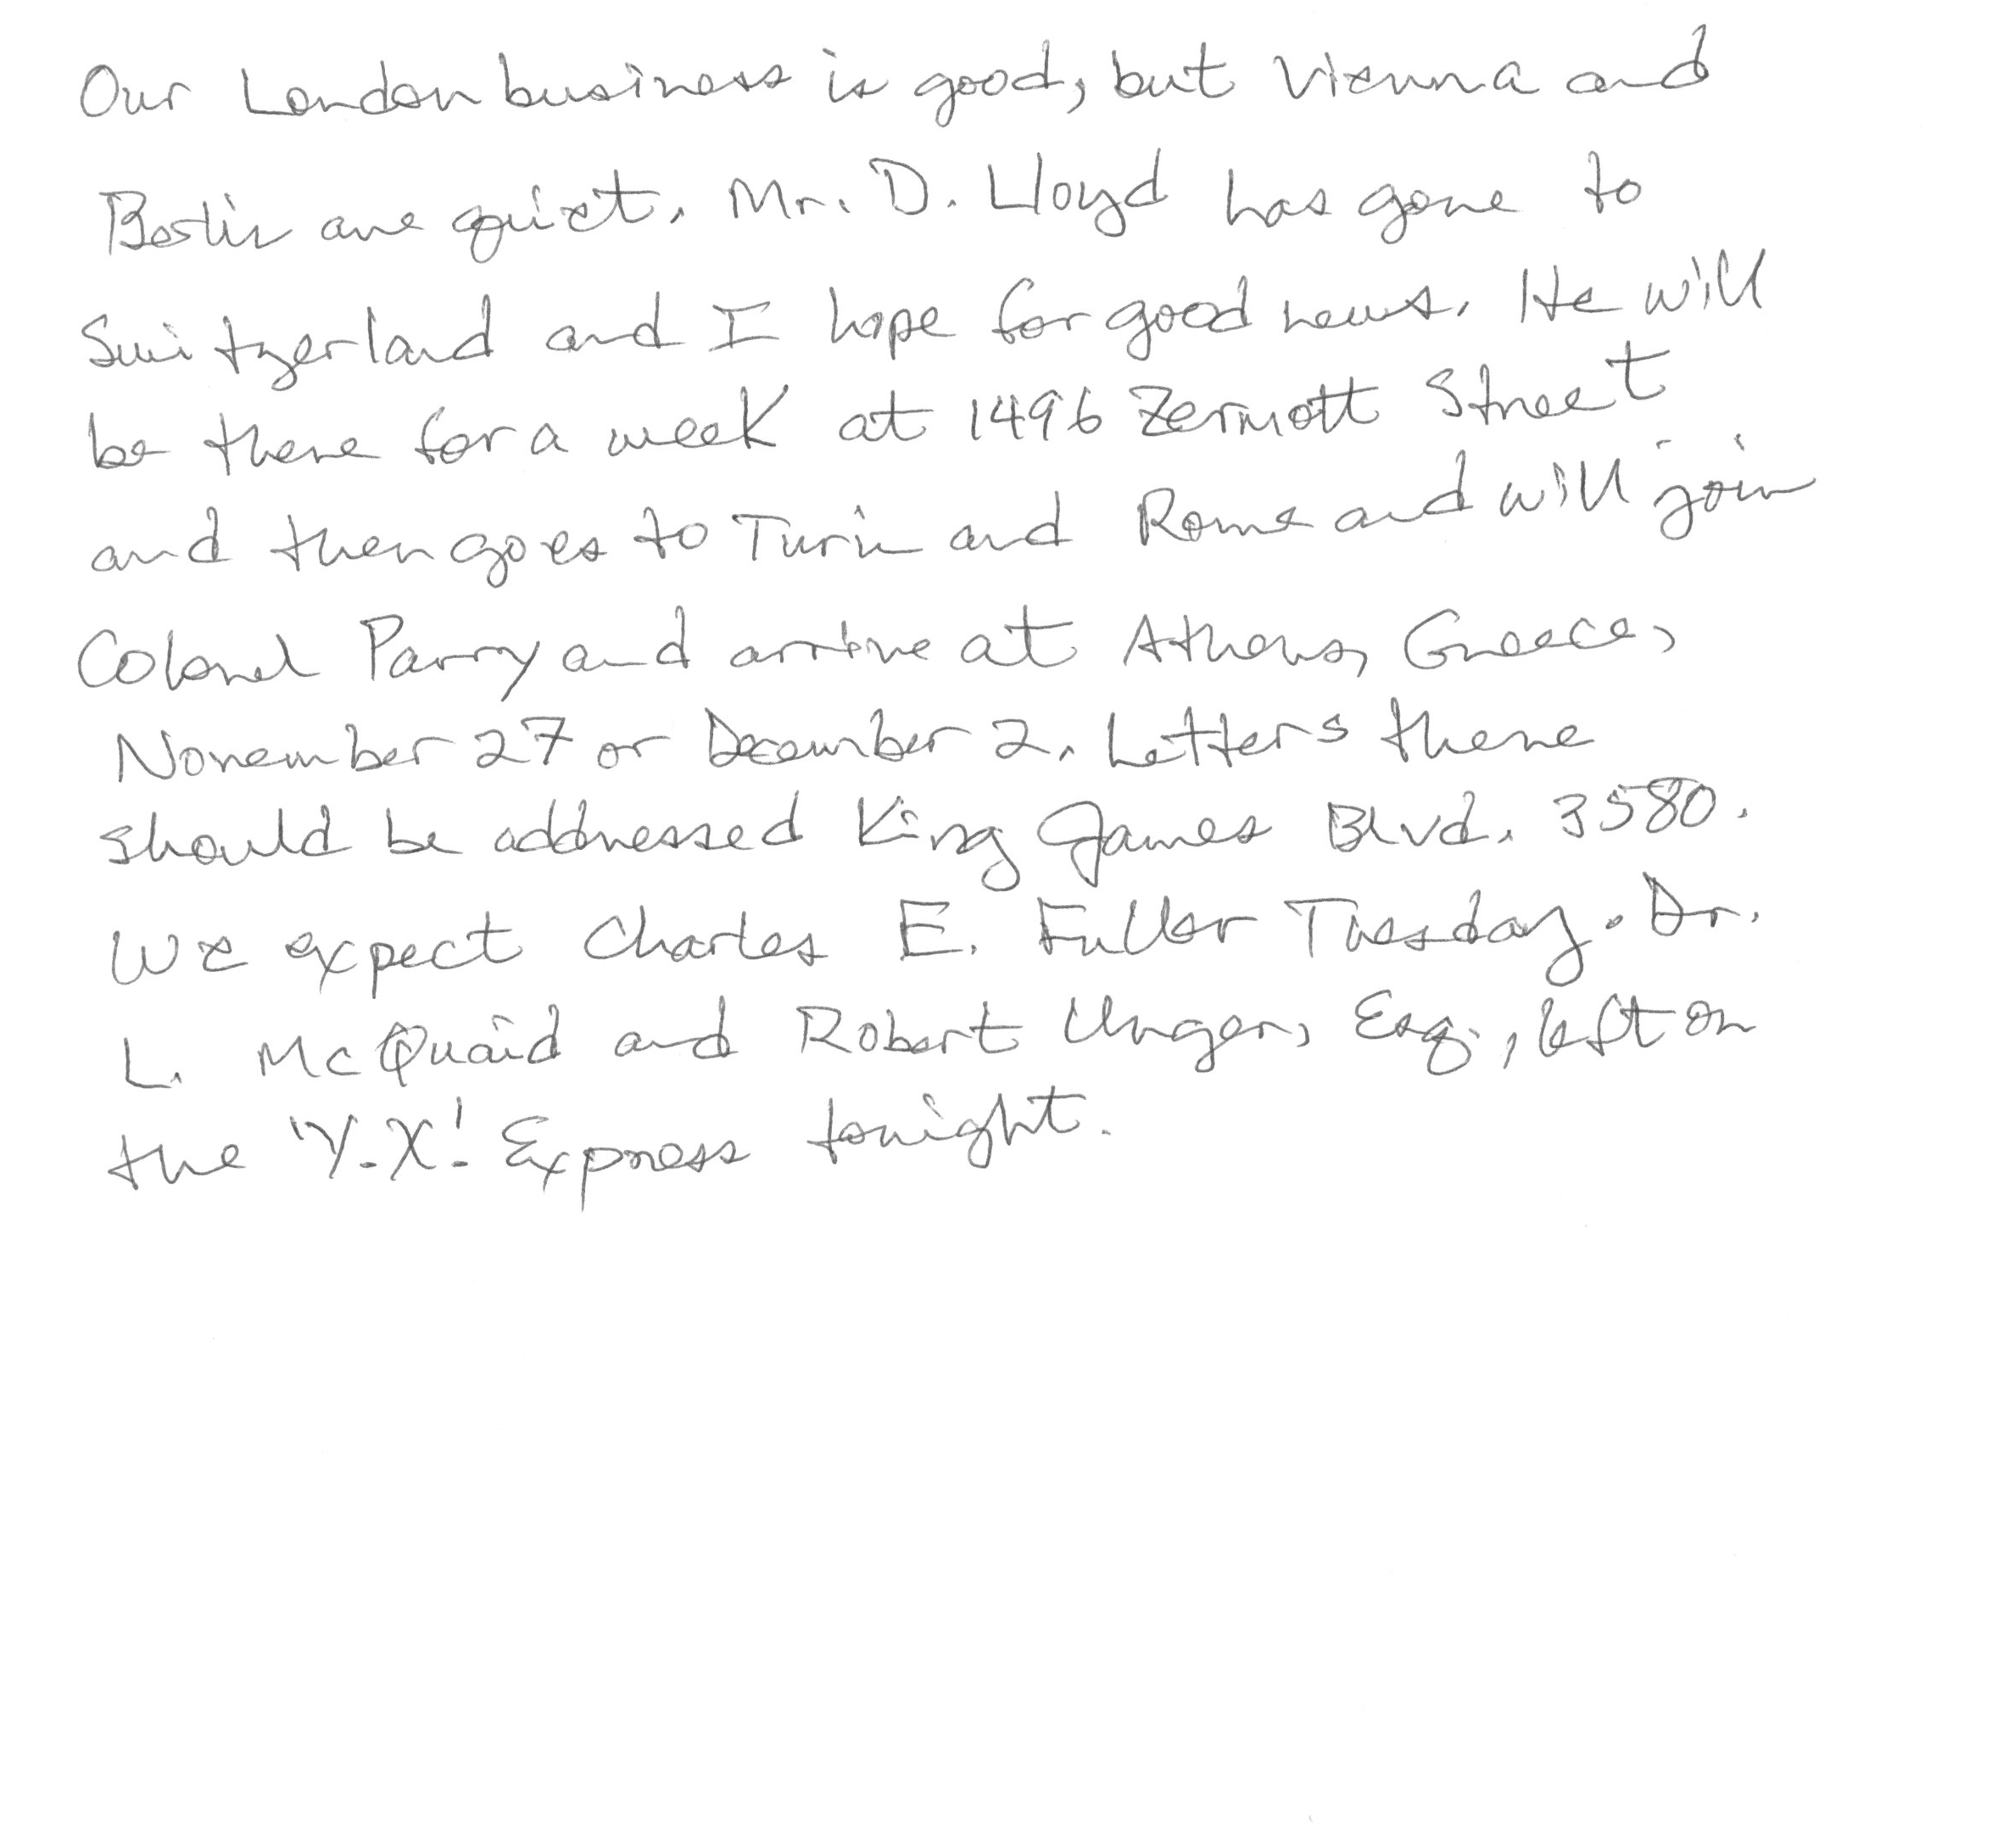 Our London business is good, but Vienna and
Berlin are quiet. Mr. D. Lloyd has gone to
Switzerland and I hope for good news. He will
be there for a week at 1496 Zermott Street
and then goes to Turin and Rome and will join
Colonel Parry and arrive at Athens, Greece,
November 27 or December 2. Letters there
should be addressed King James Blvd. 3580.
We expect Charles E. Fuller Tuesday. Dr.
L. McQuaid and Robert Unger, Esq., left on
the 'Y.X.' Express tonight.